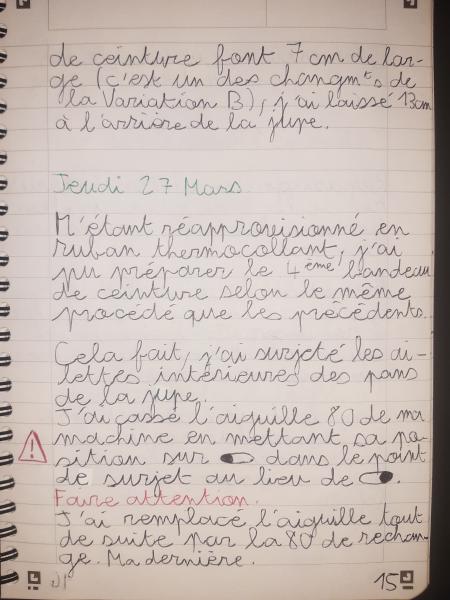 de ceinture font 7 cm de lar-
ge (c'est un des changmts de
la Variation B), j'ai laissé 13cm
à l'arrière de la jupe.
Jeudi 27 Mars.
M'étant réapprovisionné en
ruban thermocollant, j'ai
pu préparer le 4ème bandeau
de ceinture selon le même
procédé que les précédents.
Cela fait, j'ai surjeté les ai-
lettes intérieures des pans
de la jupe.
J'ai cassé l'aiguille 80 de ma
machine en mettant sa po-
sition sur dans le point
de surjet au lieu de .
Faire attention.
J'ai remplacé l'aiguille tout
de suite par la 80 de rechan-
ge. Ma dernière.
15